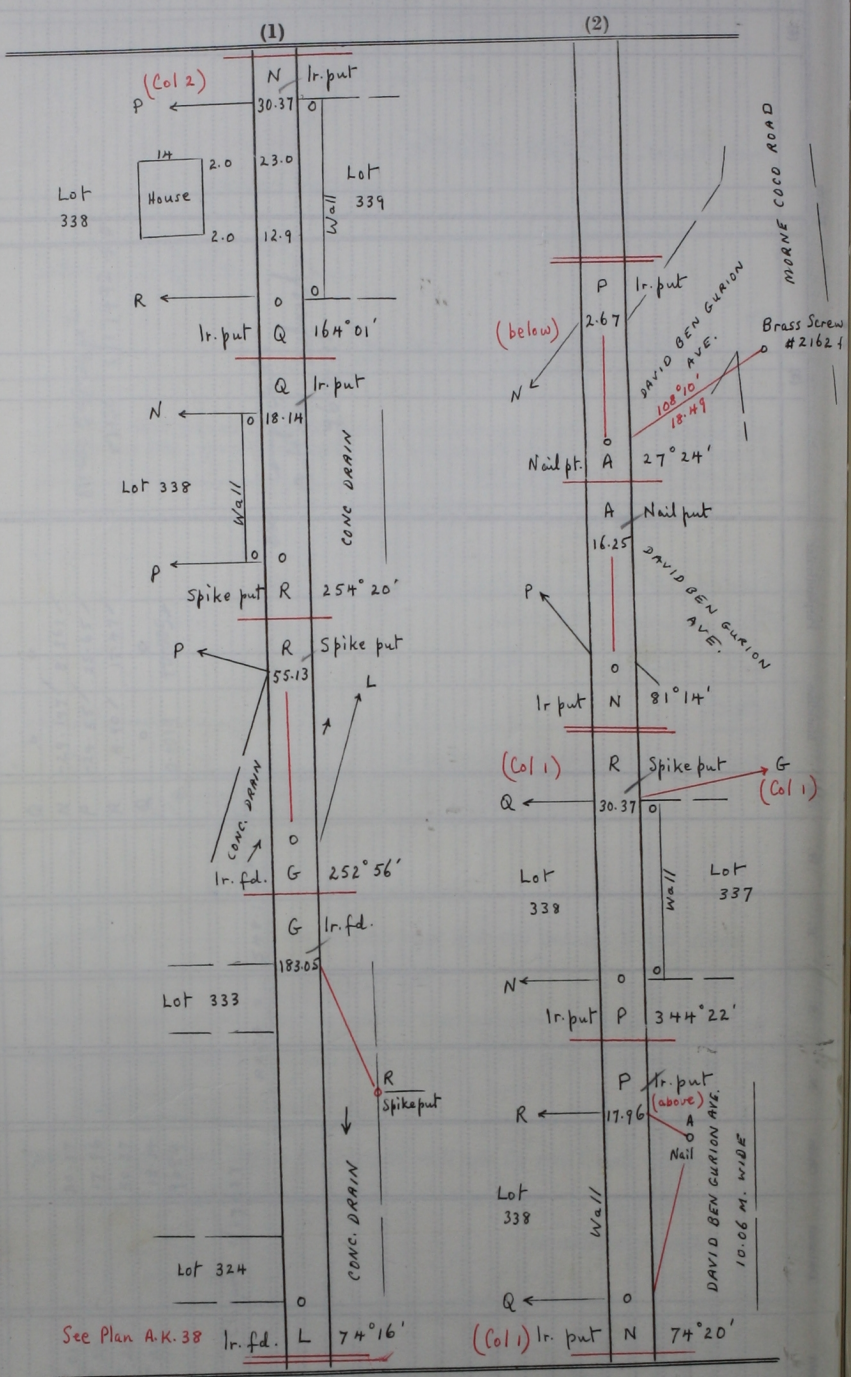 (1)
(Col 2)
N Ir. put
P 30.37 o
14 2.0 23.0
Lot 338
House
Wall
Lot 339
2.0 12.9
R o o
Ir. put Q 164°01'
Q Ir. put
N o 18.14
Lot 338
Wall
CONC DRAIN
P o o
Spike put R 254°20'
R Spike put
P 55.13
L
CONC. DRAIN
o
Ir. fd. G 252°56'
G Ir. fd.
183.05
Lot 333
R
Spike put
CONC. DRAIN
Lot 324
o
See Plan A.K. 38 Ir. fd. L 74°16'
(2)
MORNE COCO ROAD
P Ir. put
(below) 2.67
DAVID BEN GURION
AVE.
Brass Screw
#2162 f
N
108°10'
18.49
o
Nail pt. A 27°24'
A Nail put
16.25
DAVID BEN GURION
AVE.
P
o
Ir put N 81°14'
(Col 1) R Spike put G
(Col 1)
Q 30.37 o
Lot
338
Wall
Lot
337
N o o
Ir. put P 344°22'
P Ir. put
(above)
R 17.96 A
o
Nail
Lot
338
Wall
DAVID BEN GURION AVE.
10.06 M. WIDE
Q o
(Col 1) Ir. put N 74°20'